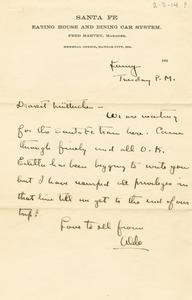 2-3-14 ?
SANTA FE
EATING HOUSE AND DINING CAR SYSTEM.
FRED HARVEY, MANAGER.
GENERAL OFFICE, KANSAS CITY, MO.
191
Tuesday P.M.
Dearest
We are waiting
for the Santa Fe train here. Came
through finely and all O.K.
has been begging to write you
but I have all privileges in
that line till we get to the end of our
trip.
Love to all from